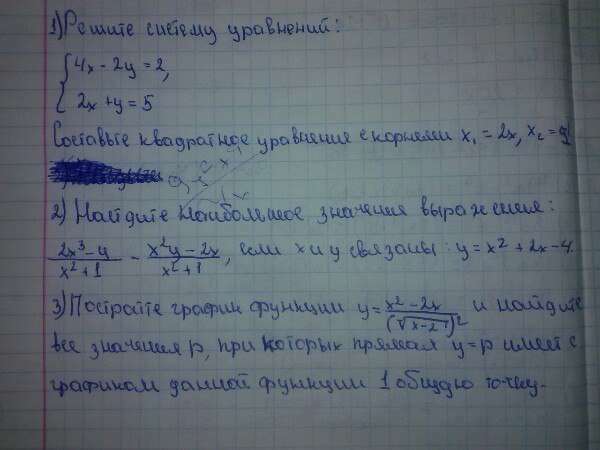 1) Решите систему уравнений:
{4x - 2y = 2,
2x + y = 5
Составьте квадратное уравнение с корнями x₁ = 2x, x₂ = y
2) Найдите наибольшее значения выражения:
(2x³ - y)/(x² + 1) - (x²y - 2x)/(x² + 1), если x и y связаны: y = x² + 2x - 4.
3) Постройте график функции y = (x² - 2x)/(√x - 2)² и найдите
все значения p, при которых прямая y = p имеет с
графиком данной функции 1 общую точку.